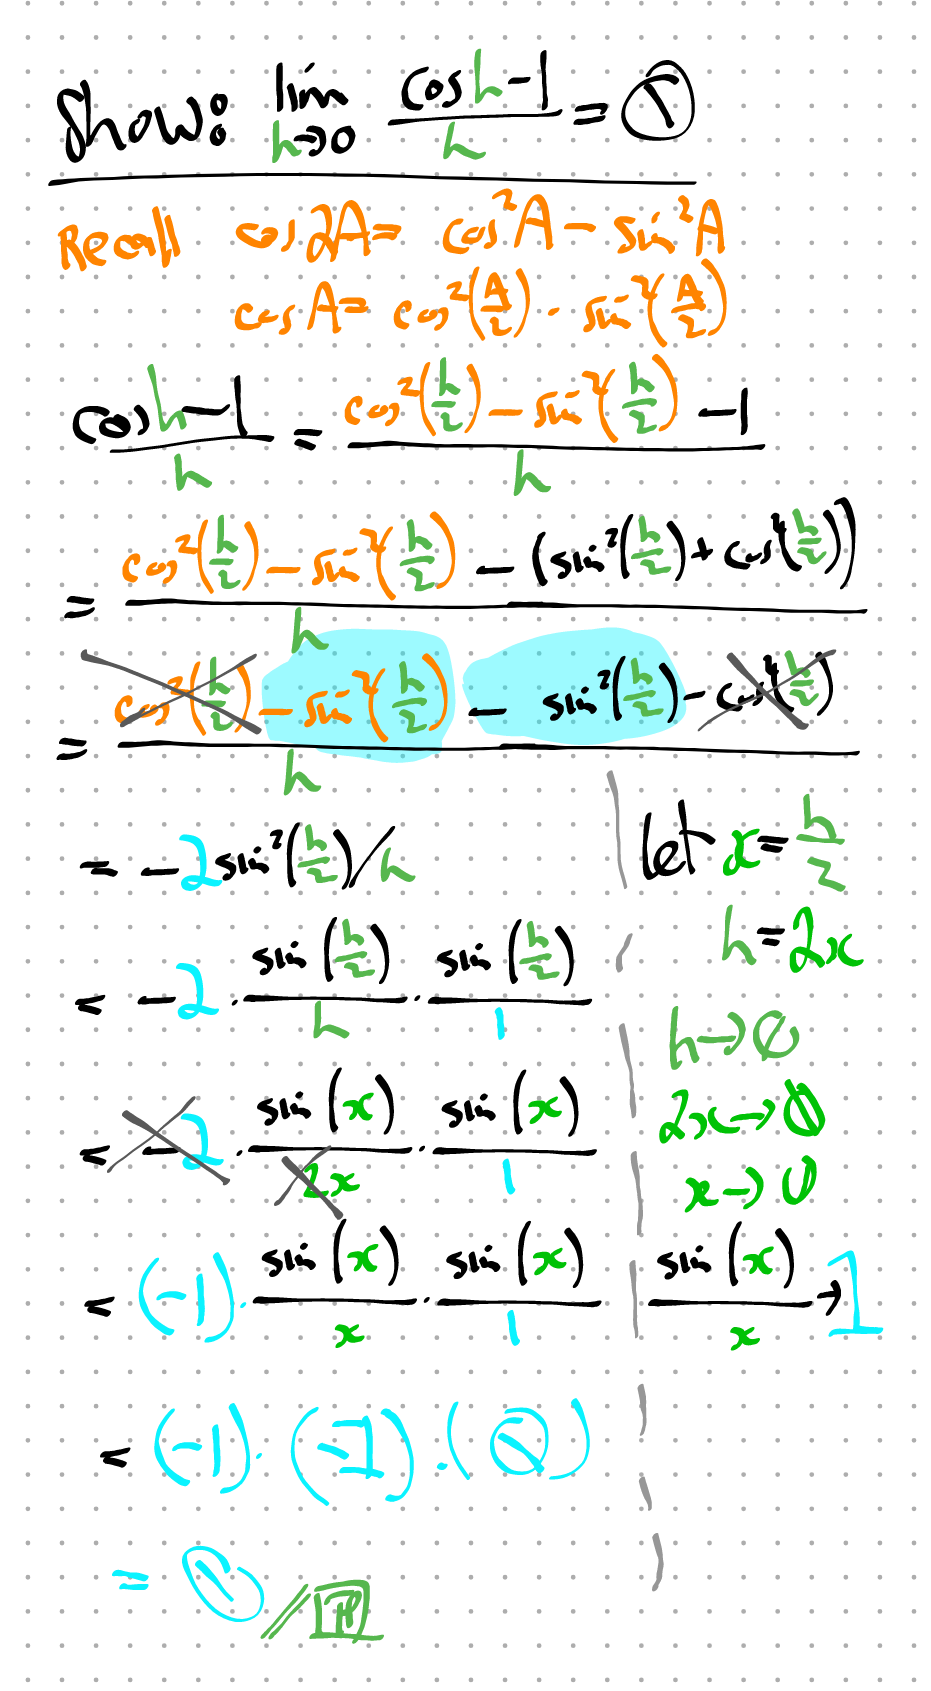 Show: lim h→0 (cos h − 1)/h = 0
Recall cos 2A = cos²A − sin²A
cos A = cos²(A/2) - sin²(A/2)
(cos h − 1)/h = (cos²(h/2) − sin²(h/2) − 1)/h
= (cos²(h/2) − sin²(h/2) − (sin²(h/2) + cos²(h/2)))/h
= (cos²(h/2) − sin²(h/2) − sin²(h/2) − cos²(h/2))/h
= −2 sin²(h/2)/h
= −2 · sin(h/2)/h · sin(h/2)/1
= −2 · sin(x)/2x · sin(x)/1
= (−1) · sin(x)/x · sin(x)/1
= (−1) · (1) · (0)
= 0 //
let x = h/2
h = 2x
h → 0
2x → 0
x → 0
sin(x)/x → 1